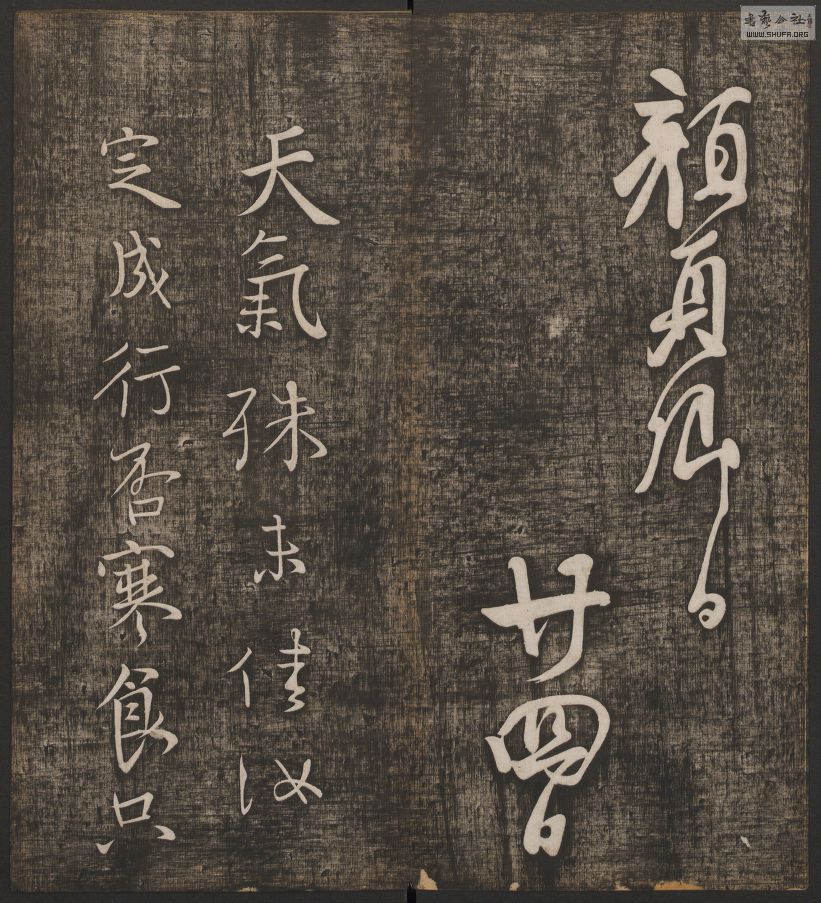 書藝公社
WWW.SHUFA.ORG
顏真卿白
廿四日
天氣殊未佳汝
定成行否寒食只